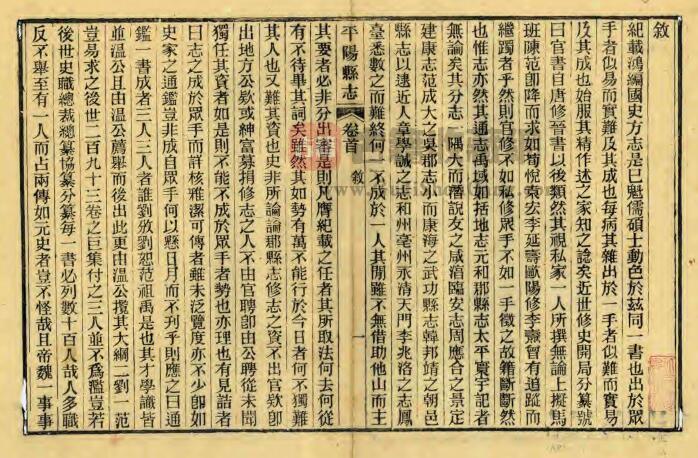 敘
紀載鴻編國史方志是已魁儒碩士動色於茲同一書也出於眾
手者似易而實難及其成也每病其雜出於一手者似難而實易
及其成也始服其精作述之家知之諗矣近世修史開局分纂號
曰官書自唐修晉書以後類然其視私家一人所撰無論上擬馬
班陳范卽降而求如荀悅袁宏李延壽歐陽修李燾曾有追蹤而
繼躅者乎然則官修不如私修眾手不如一手徵之故籍斷斷然
也惟志亦然其通志禹域如括地志元和郡縣志太平寰宇記者
無論矣其分志 隅大而潛說友之咸淳臨安志周應合之景定
建康志范成大之吳郡志小而康海之武功縣志韓邦靖之朝邑
縣志以逮近人章學誠之志和州亳州永清天門李兆洛之志鳳
臺悉數之而難終何 不成於一人其閒雖不無借助他山而主
平陽縣志
卷首
敘
一
其要者必非分出審是則凡膺紀載之任者其所取法何去何從
有不待畢其詞矣雖然其如勢有萬不能行於今日者何不獨難
其人也又難其資也史非所論論郡縣修志之資不出官欵卽
出地方公欵或紳富募捐修志之人不由官聘卽由公聘從未聞
獨任其資者如是則不能不成於眾手者勢也亦理也有見詰者
曰志之成於眾手而許核雅潔可傳者雖未泛覽度亦不少卽如
史家之通鑑豈非成自眾手何以懸日月而不刋乎則應之曰通
鑑一書成者三人三人者誰劉攽劉恕范祖禹是也其才學識皆
並溫公且由溫公薦舉而後出此更由溫公攬其大綱二劉一范
豈易求之後世二百九十三卷之巨集付之三人並不爲濫豈若
後世史職總裁總纂協纂分纂每一書必列數十百人哉人多職
反不舉至有一人而占兩傳如元史者豈不怪哉且帝魏一事事